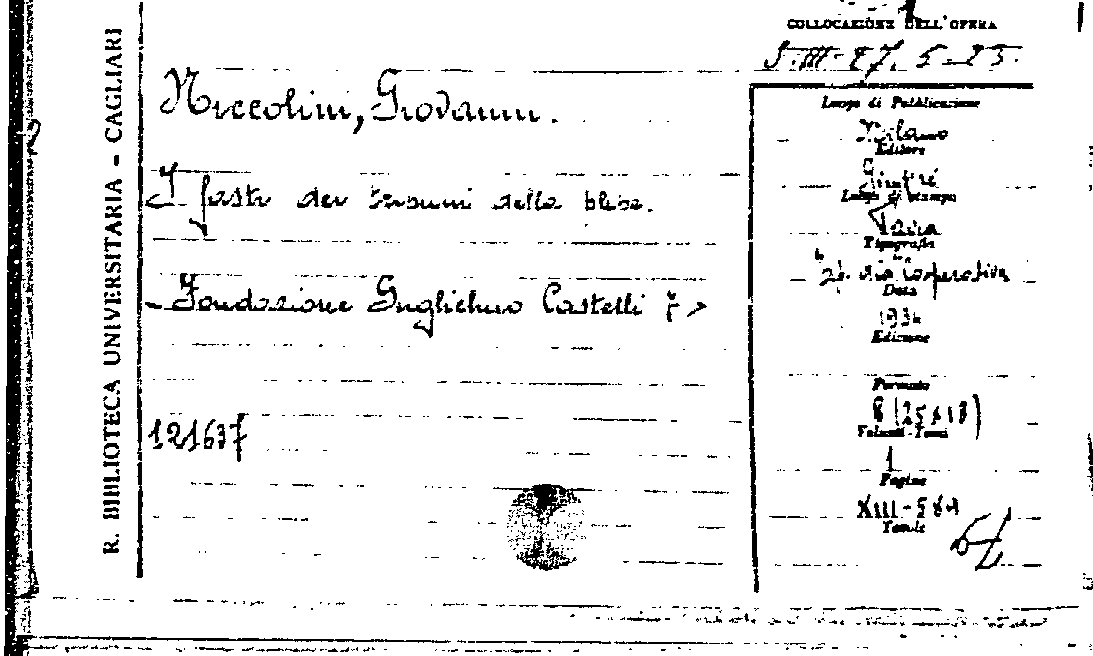 R. BIBLIOTECA UNIVERSITARIA - CAGLIARI
COLLOCAZIONE DELL'OPERA
S. III. 27. 5-23.
Niccolini, Giovanni.
I fasti dei tribuni della plebe.
- Fondazione Guglielmo Castelli 7 >
121637
Luogo di Pubblicazione
Milano
Editore
Giuffrè
Luogo di stampa
Pavia
Tipografia
Tip. già cooperativa
Data
1934
Edizione
Formato
8 (25x18)
Volumi-Tomi
1
Pagine
Tavole